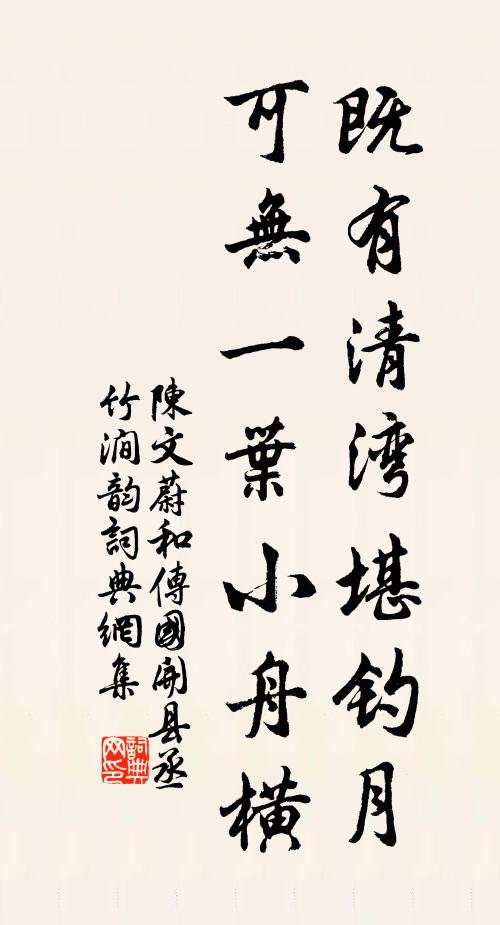 既有清湾堪钓月
可無一葉小舟横
陳文蔚和傅國開县丞
竹澗韵詞典網集
詞典